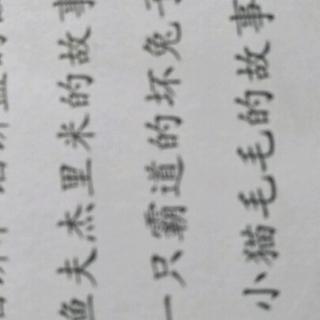 渔夫杰里米的故事
一只霸道的坏兔子
小猫毛毛的故事